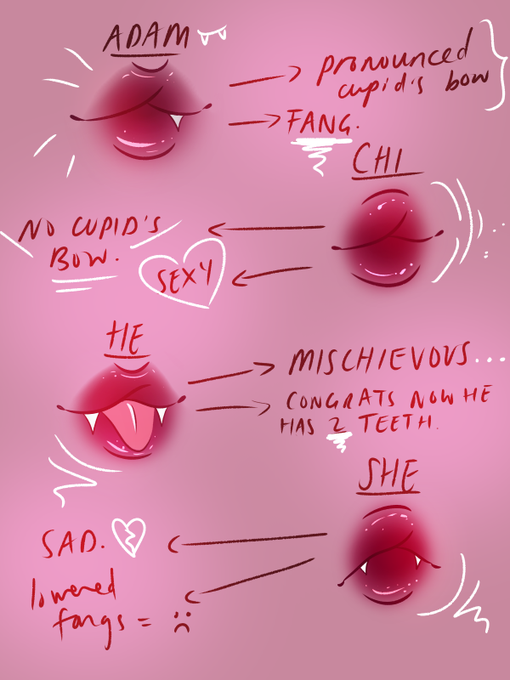 ADAM
pronounced
cupid's bow
FANG.
CHI
NO CUPID'S
BOW.
SEXY
HE
MISCHIEVOUS...
CONGRATS NOW HE
HAS 2 TEETH.
SHE
SAD.
lowered
fangs = :(